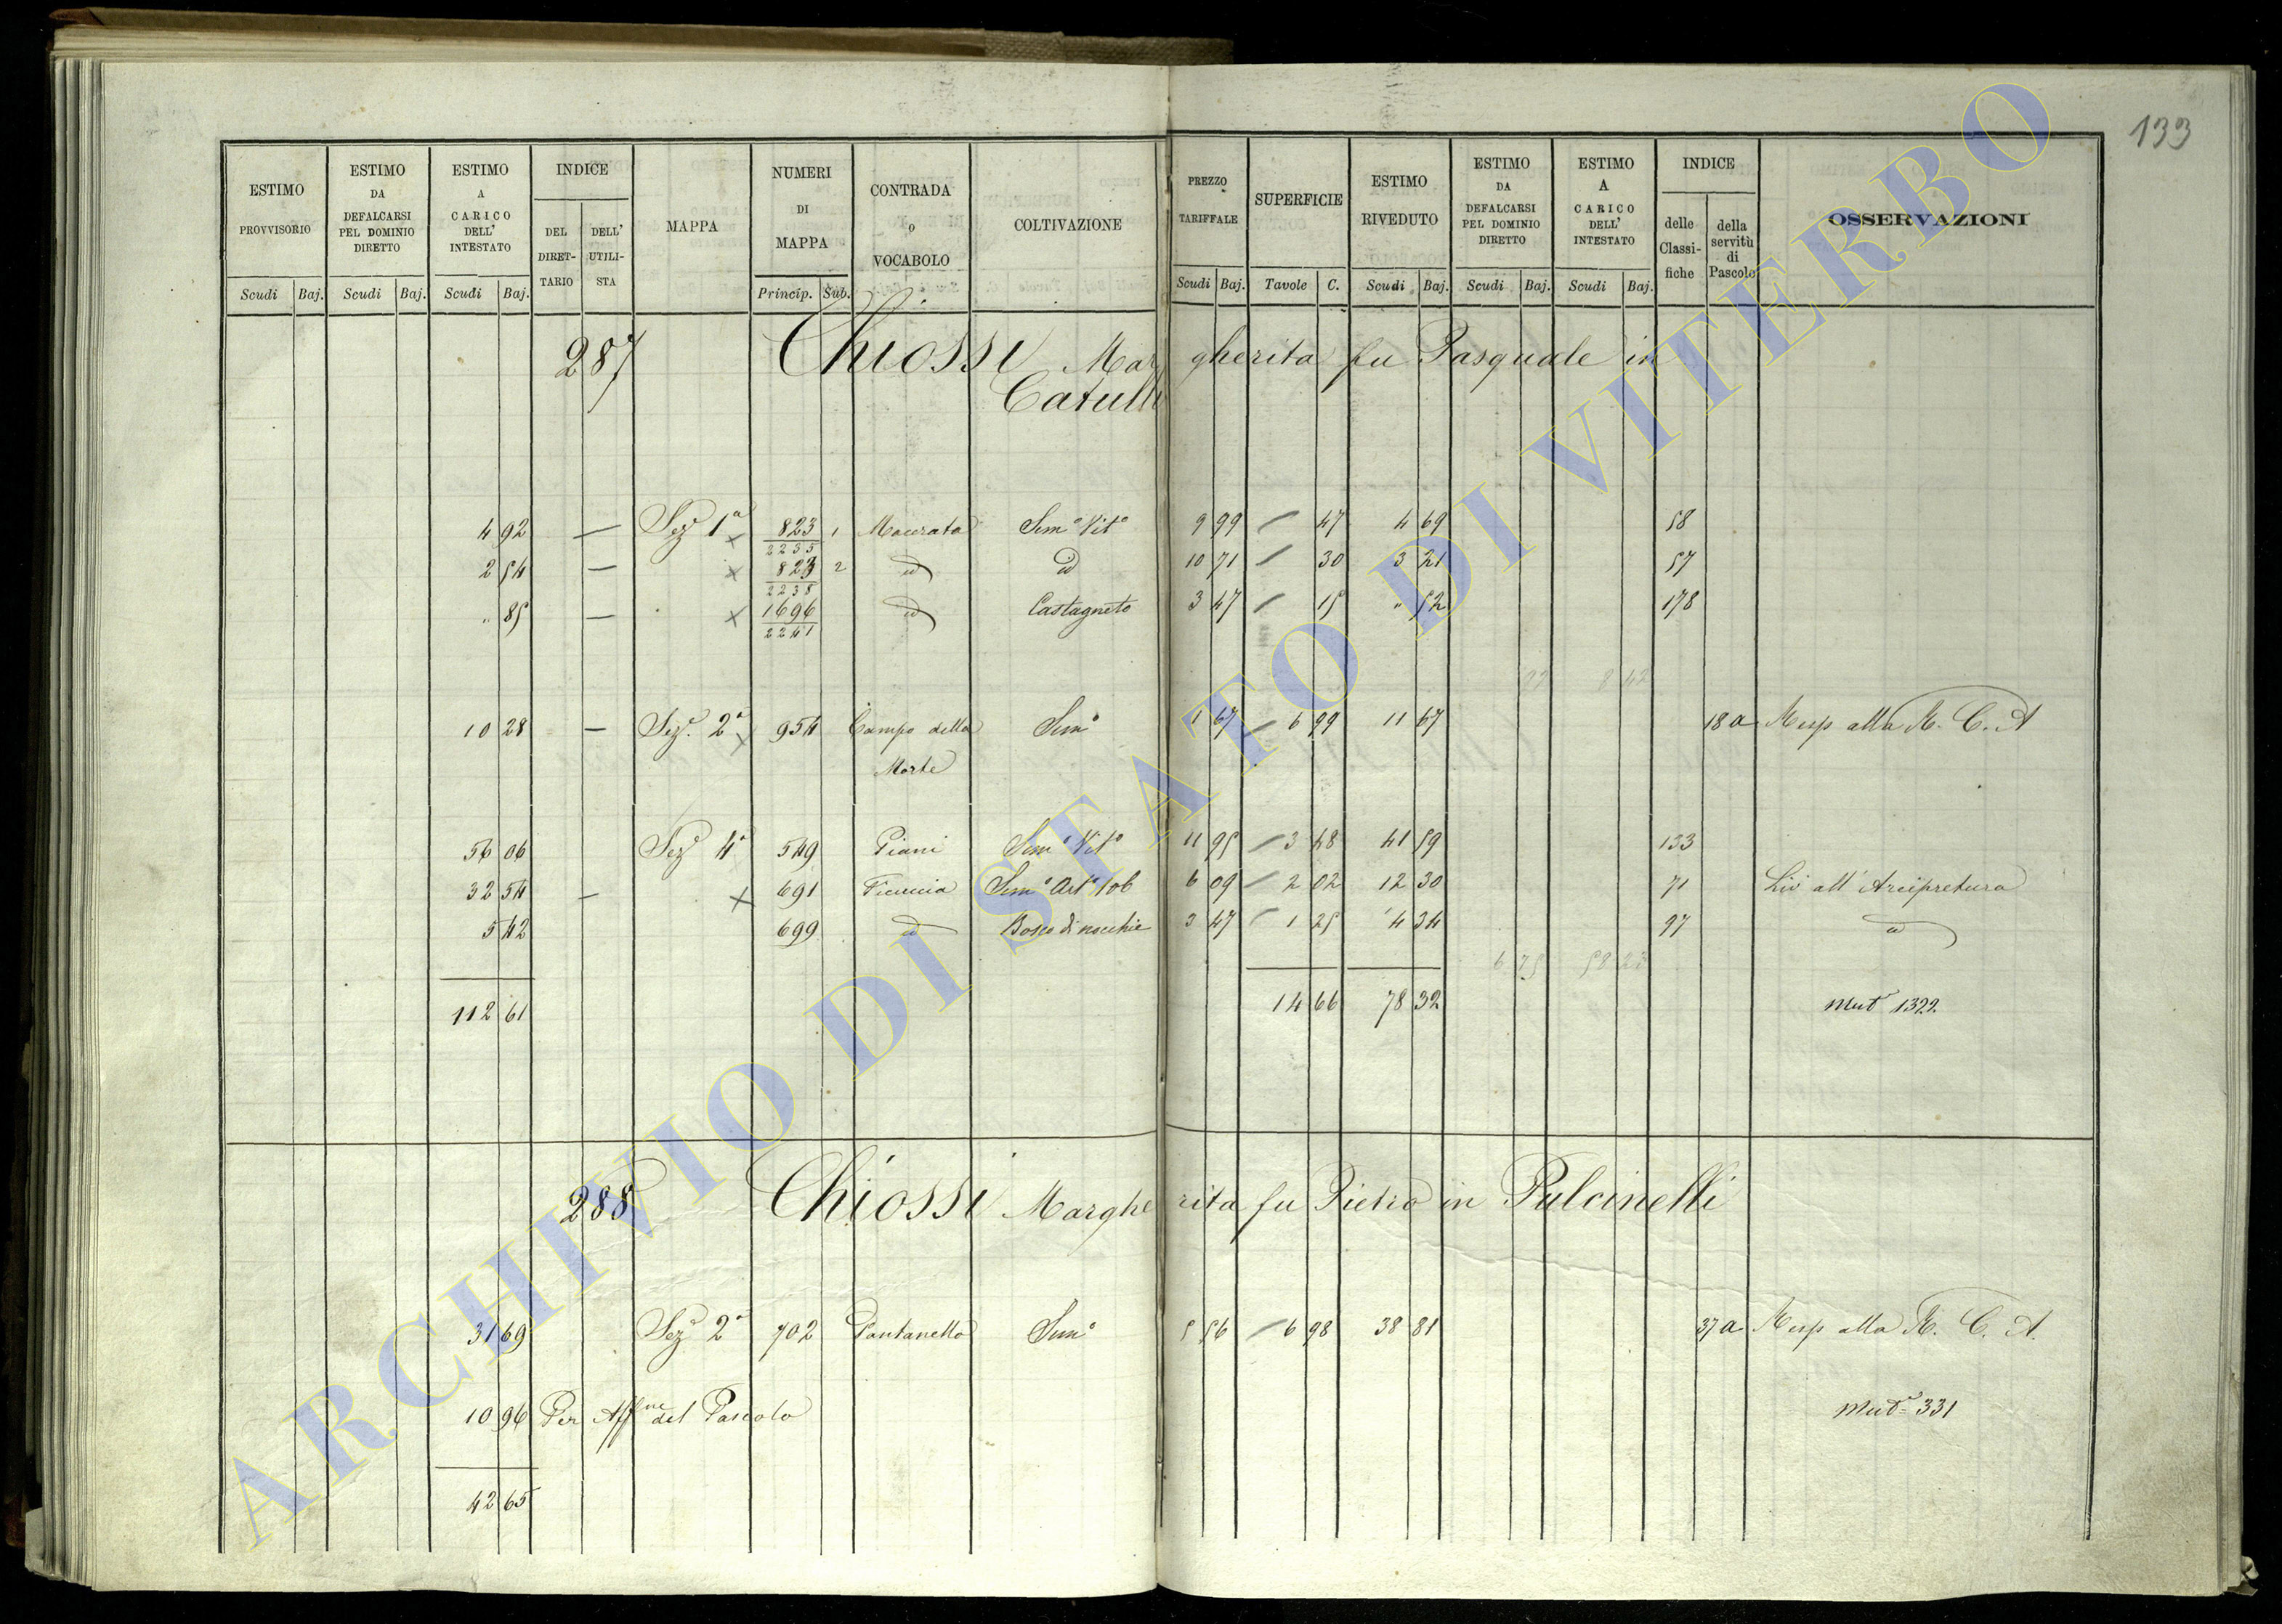 133
ESTIMO PROVVISORIO Scudi Baj.
ESTIMO DA DEFALCARSI PEL DOMINIO DIRETTO Scudi Baj.
ESTIMO A CARICO DELL' INTESTATO Scudi Baj.
INDICE DEL DIRET-TARIO DELL' UTILI-STA
MAPPA
NUMERI DI MAPPA Princip. Sub.
CONTRADA o VOCABOLO
COLTIVAZIONE
PREZZO TARIFFALE Scudi Baj.
SUPERFICIE Tavole C.
ESTIMO RIVEDUTO Scudi Baj.
ESTIMO DA DEFALCARSI PEL DOMINIO DIRETTO Scudi Baj.
ESTIMO A CARICO DELL' INTESTATO Scudi Baj.
INDICE delle Classi-fiche della servitù di Pascolo
OSSERVAZIONI
287 Chiossi Margherita fu Pasquale in
Catulli
4 92 — Sez.e 1a x 823/2235 1 Macerata Sem.o Vit.o 9 99 / 47 4 69 58
2 54 — x 823/2238 2 id id 10 71 / 30 3 21 57
" 85 — x 1696/2241 id Castagneto 3 47 / 15 " 52 178
8 42
10 28 — Sez.e 2a x 954 Campo della Sem.o 1 67 / 6 99 11 67 18 a Risp alla R. C. A
Morte
56 06 Sez.e 4a 549 Piani Sem.o Vit.o 11 95 / 3 48 41 59 133
32 54 — x 691 Ficuccia Sem.o Art.o Pob 6 09 / 2 02 12 30 71 Liv all'Arcipretura
5 42 699 id Bosco di nocchie 3 47 / 1 25 4 34 97 id
6 75 58 23
112 61 14 66 78 32 Mut 1322
288 Chiossi Margherita fu Pietro in Pulcinelli
31 69 Sez.e 2a 702 Pantanello Sem.o 5 56 / 6 98 38 81 37 a Risp alla R. C. A.
10 96 Per Aff.ne del Pascolo Mut.e 331
42 65
ARCHIVIO DI STATO DI VITERBO